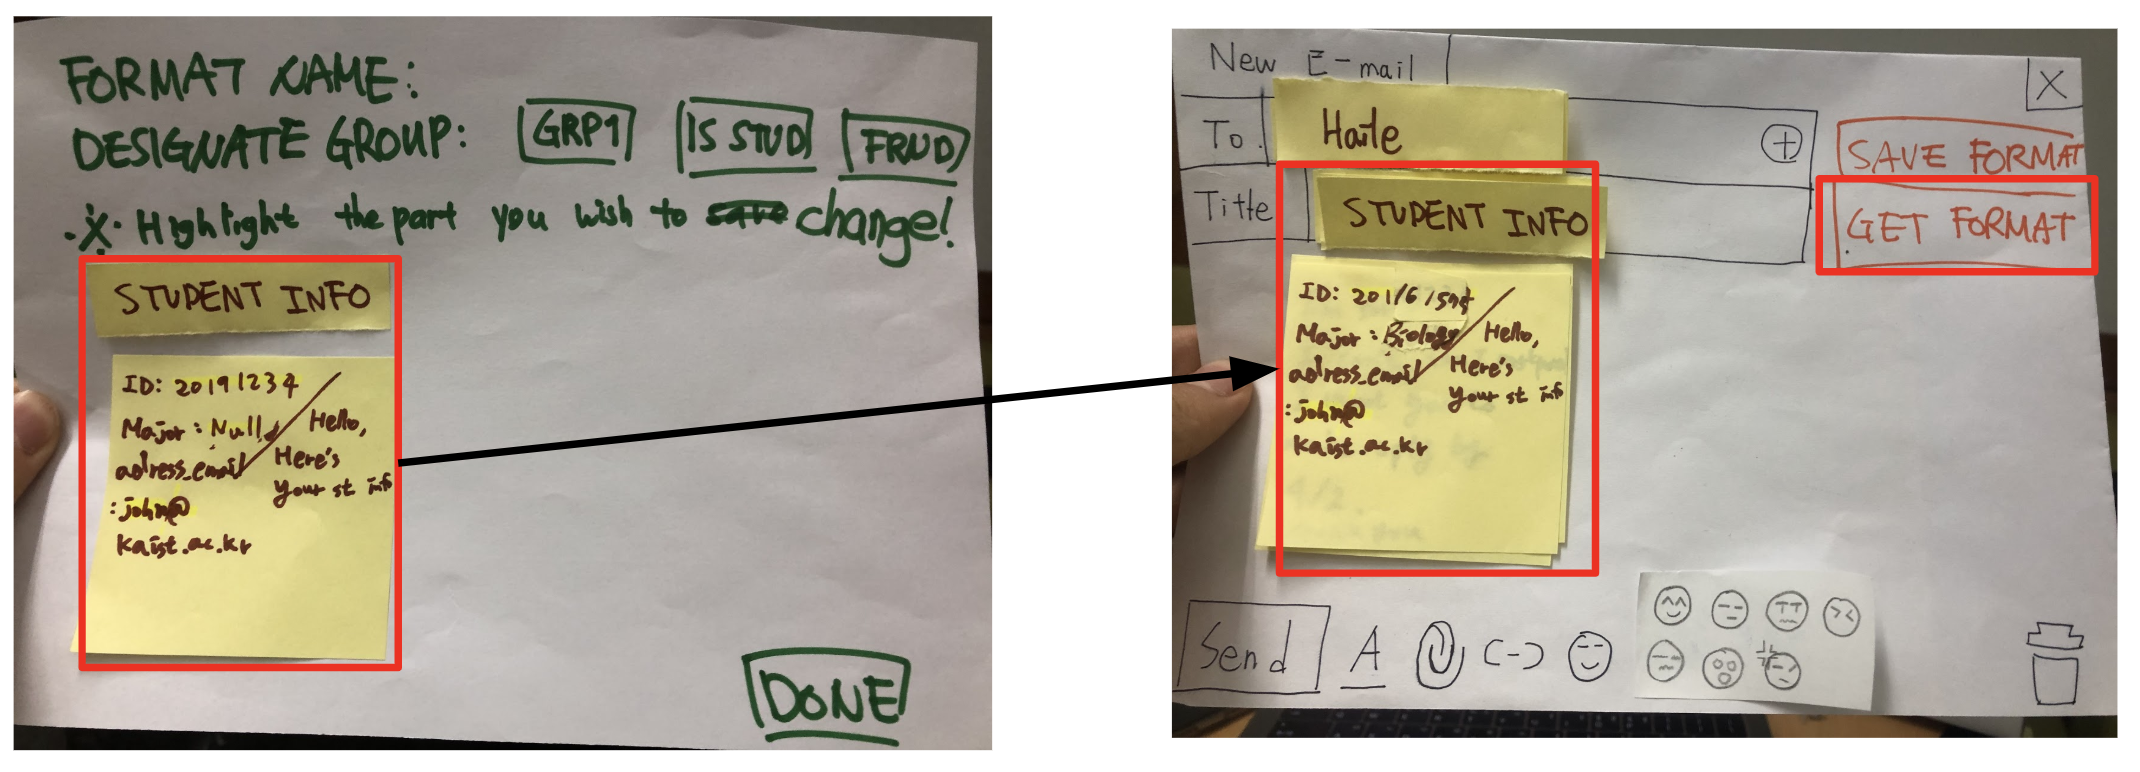 FORMAT NAME:
DESIGNATE GROUP: GRP1 IS STUD FRND
※ Highlight the part you wish to save change!
STUDENT INFO
ID: 20191234
Major: Null
adress_email
: john@
kaist.ac.kr
Hello,
Here's
your st info
DONE
New E-mail
X
To. Haile +
SAVE FORMAT
Title STUDENT INFO
GET FORMAT
ID: 201/6/
Major: Biology
adress_email
: john@
kaist.ac.kr
Hello,
Here's
your st info
Send A